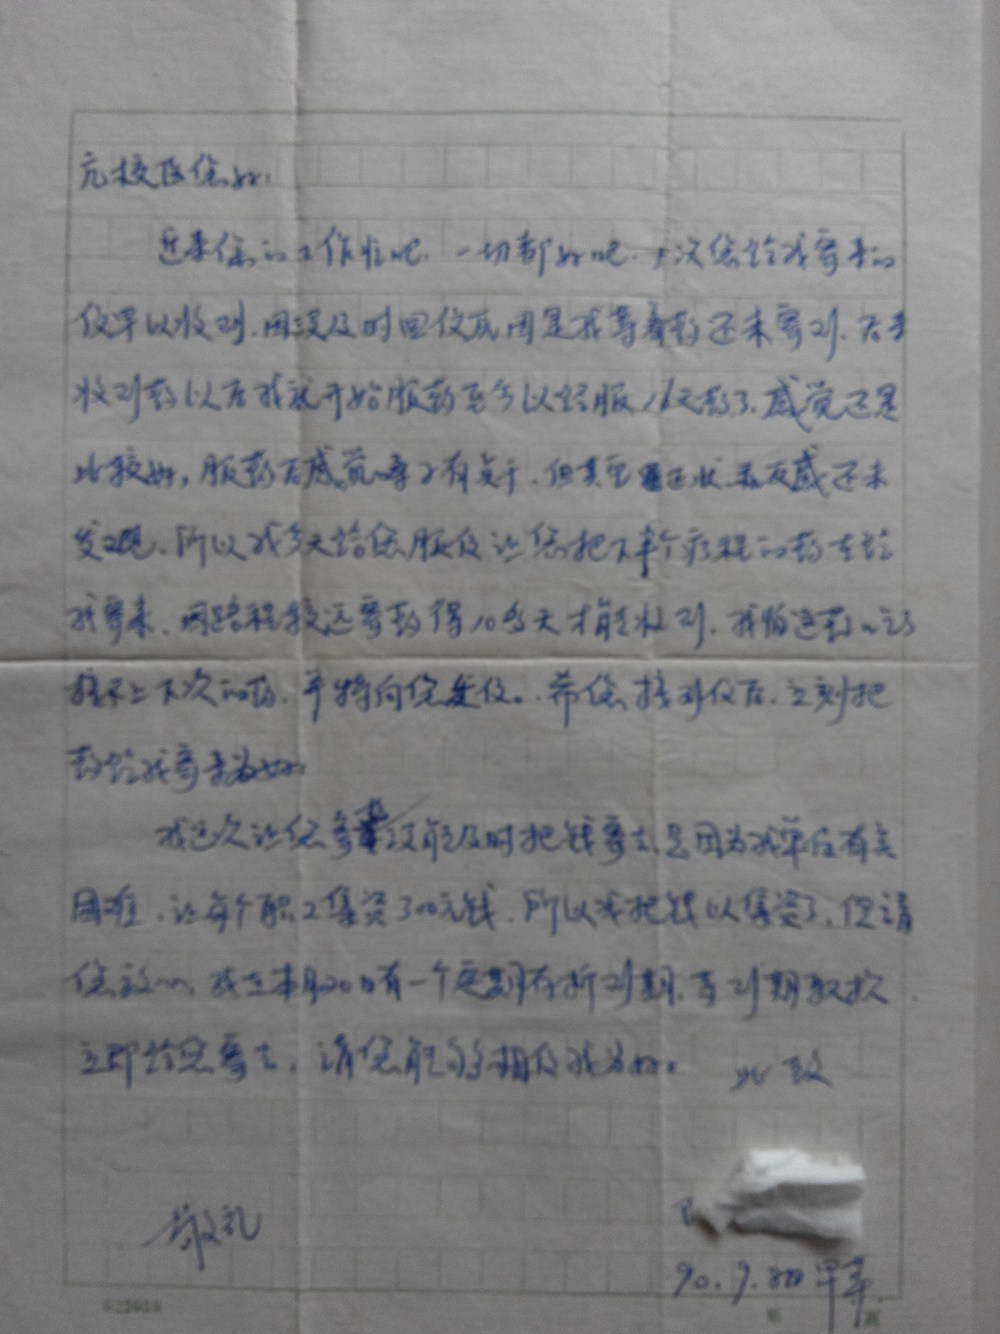 亢校医您好：
近来您的工作忙吧，一切都好吧。上次您给我寄来的
信早以收到，因没及时回信原因是我等着药还未寄到，后来
收到药以后我就开始服药至今以经服16天药了，感觉还是
比较好，服药后感觉嗓子有点干，但其它症状和反感还未
发现，所以我今天给您服信让您把下个疗程的药去给
我寄来，因路程较远寄药得10多天才能收到，我怕这药吃了
接不上下次的药，予特向您去信。希您接到信后，立刻把
药给我寄来为好。
我这次让您寄药没能及时把钱寄去是因为我单位有点
困难，让每个职工集资300元钱，所以我把钱以集资了，但请
您放心，我在本月20日有一个定期存折到期，等到期取款
立即给您寄去，请您能够相信我为好。 此致
敬礼
90.9.
522018